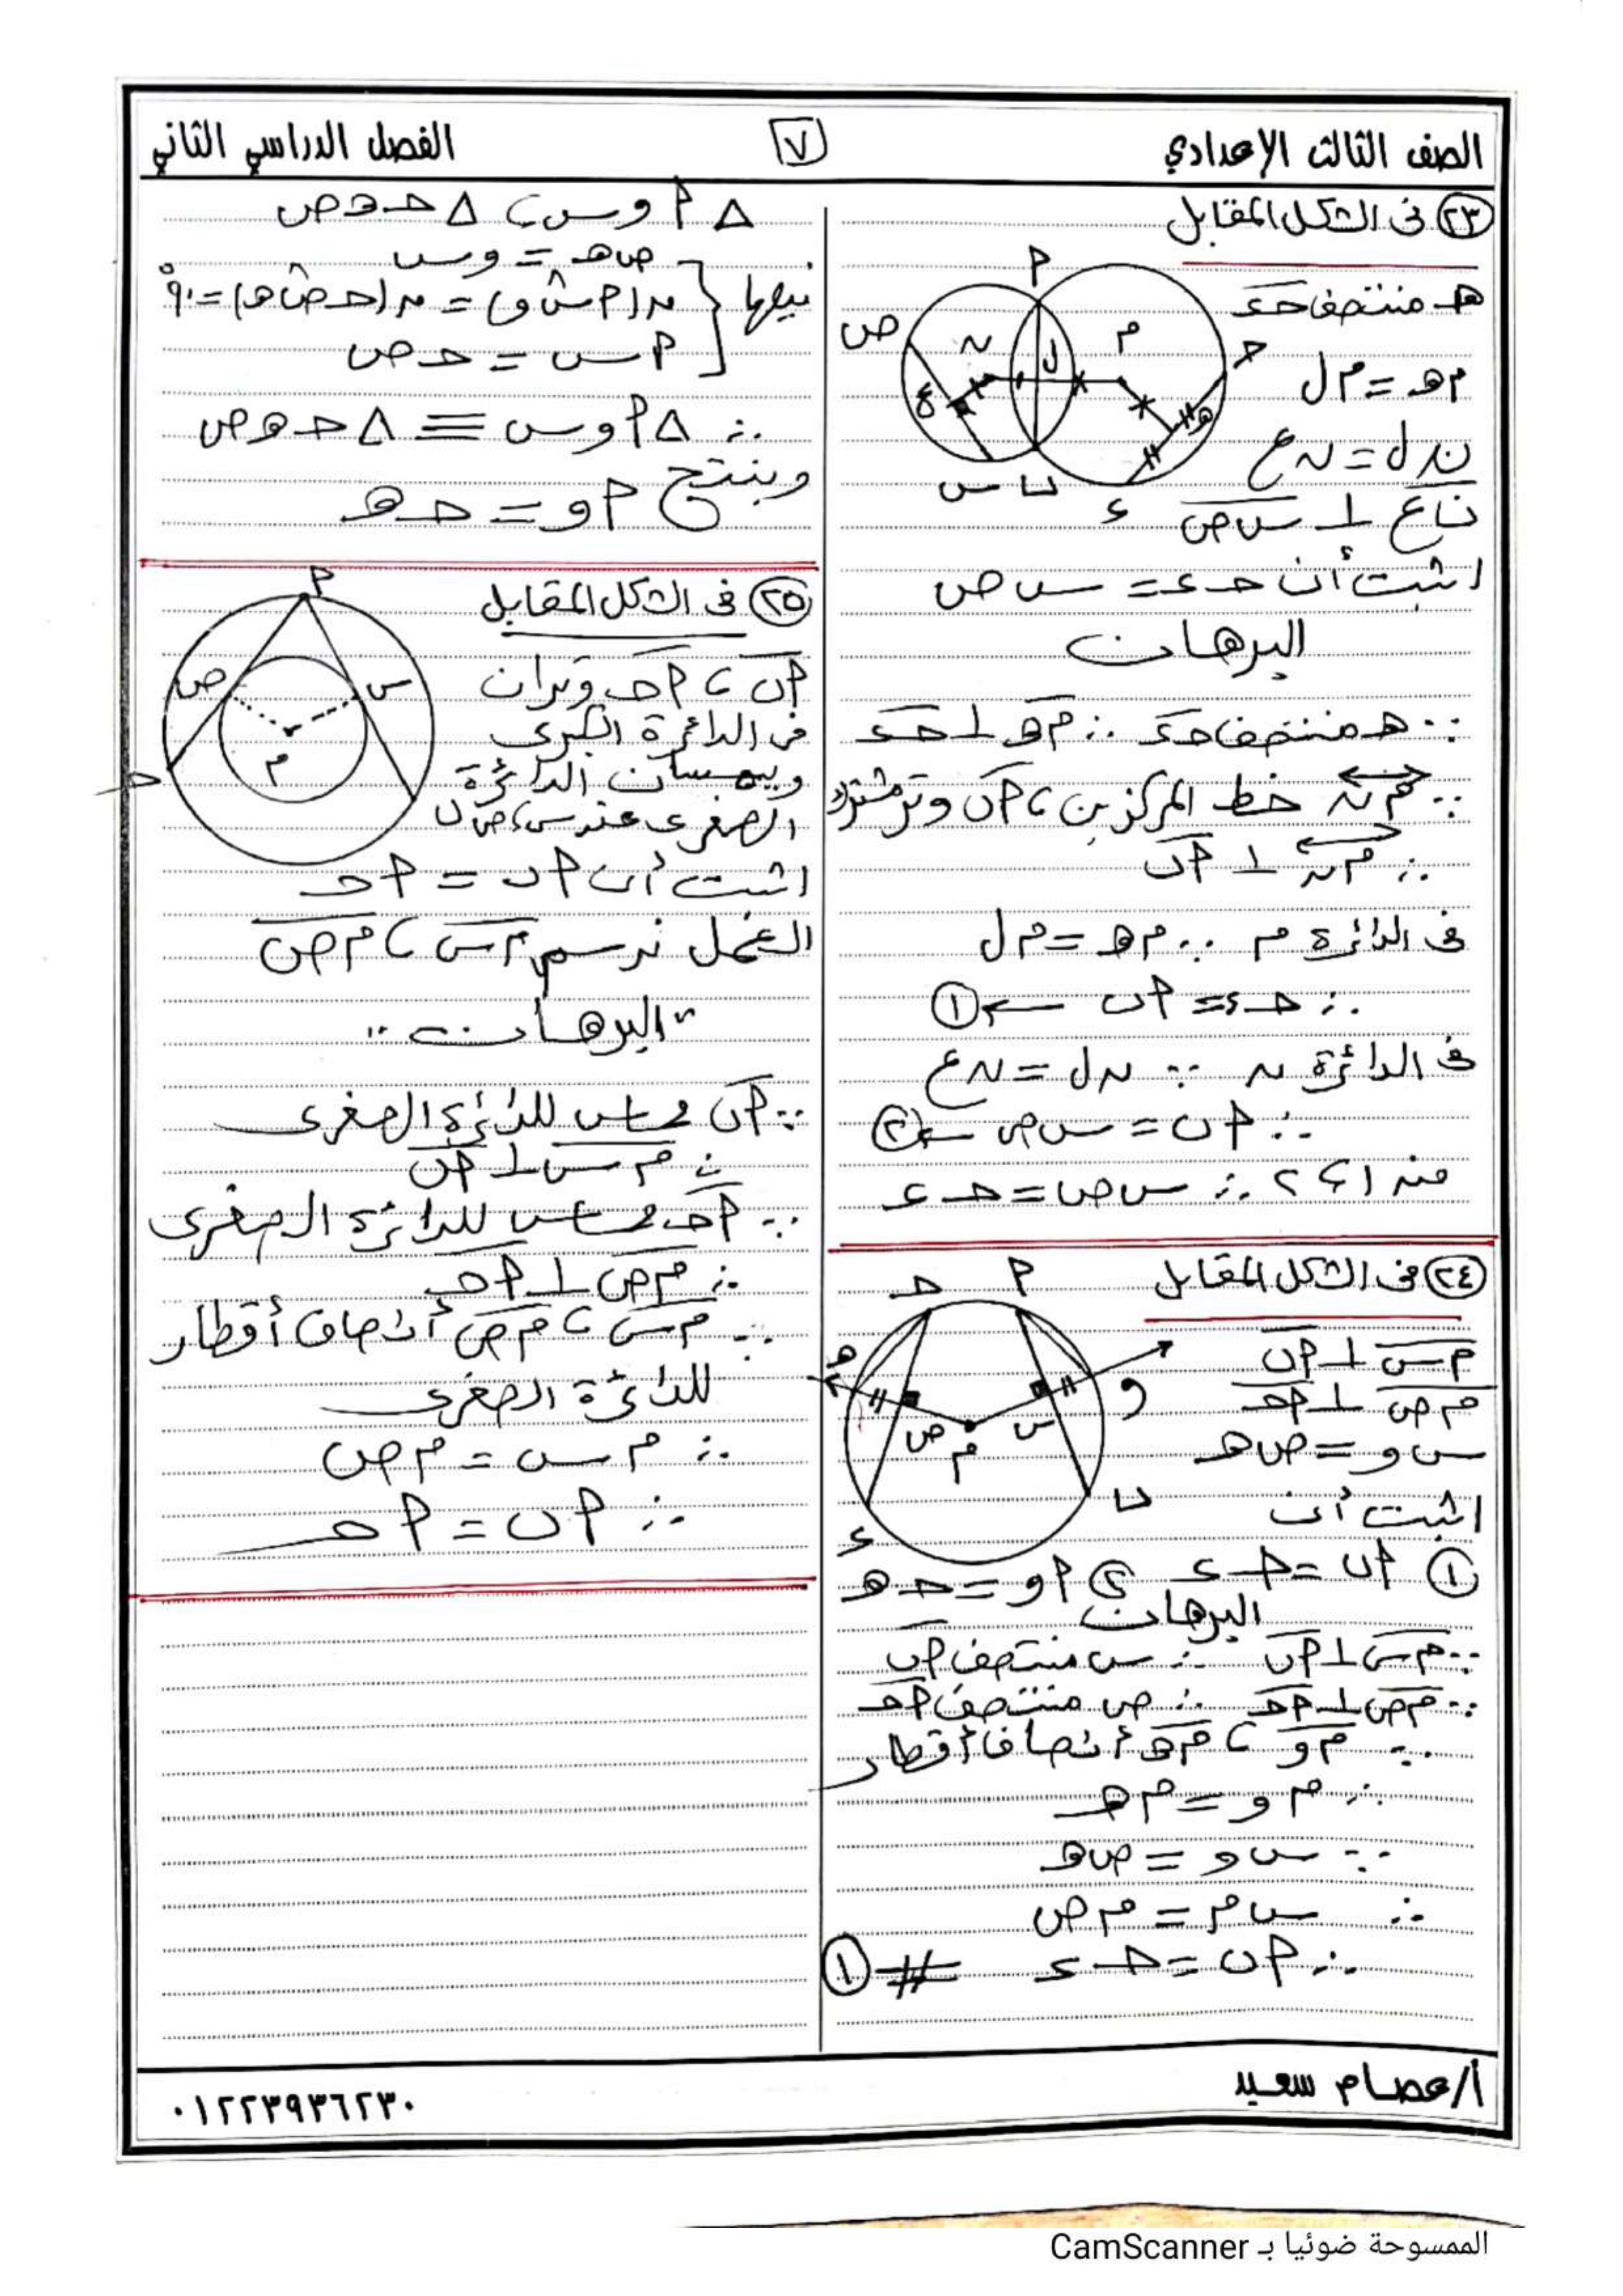 الصف الثالث الإعدادي
٧
الفصل الدراسي الثاني
٢٣ في الشكل المقابل
هـ منتصف حـ ء
م هـ = م ل
ن ل = ن ع
ن ع ⊥ س ص
اثبت أن حـ ء = س ص
م
ن
ل
ع
ص
س
ب
ء
هـ
حـ
أ
البرهان
∵ هـ منتصف حـ ء ∴ م هـ ⊥ حـ ء
∵ م ن خط المركزين ، أ ب وتر مشترك
∴ م ن ⊥ أ ب
في الدائرة م ∵ م هـ = م ل
∴ حـ ء = أ ب ← ١
في الدائرة ن ∵ ن ل = ن ع
∴ أ ب = س ص ← ٢
من ١ ، ٢ ∴ س ص = حـ ء
٢٤ في الشكل المقابل
م س ⊥ أ ب
م ص ⊥ أ حـ
س و = ص هـ
اثبت أن
١ أ ب = حـ ء ٢ أ و = حـ هـ
أ
حـ
هـ
و
س
ص
م
ب
ء
البرهان
∵ م س ⊥ أ ب ∴ س منتصف أ ب
∵ م ص ⊥ أ حـ ∴ ص منتصف أ حـ
∵ م و ، م هـ أنصاف أقطار
∴ م و = م هـ
∵ س و = ص هـ
∴ س م = م ص
∴ أ ب = حـ ء # ١
∆ أ و س ، ∆ حـ هـ ص
فيها
ص هـ = و س
ن(أ س و) = ن(حـ ص هـ) = ٩٠°
أ س = حـ ص
∴ ∆ أ و س ≡ ∆ حـ هـ ص
وينتج أ و = حـ هـ
٢٥ في الشكل المقابل
أ ب ، أ حـ وتران
في الدائرة الكبرى
ويمسان الدائرة
الصغرى عند س ، ص
اثبت أن أ ب = أ حـ
أ
س
ص
م
حـ
ب
العمل نرسم م س ، م ص
"البرهان"
∵ أ ب مماس للدائرة الصغرى
∴ م س ⊥ أ ب
∵ أ حـ مماس للدائرة الصغرى
∴ م ص ⊥ أ حـ
∵ م س ، م ص أنصاف أقطار
للدائرة الصغرى
∴ م س = م ص
∴ أ ب = أ حـ
أ/عصام سعيد
٠١٢٢٣٩٣٦٢٣٠
الممسوحة ضوئيا بـ CamScanner